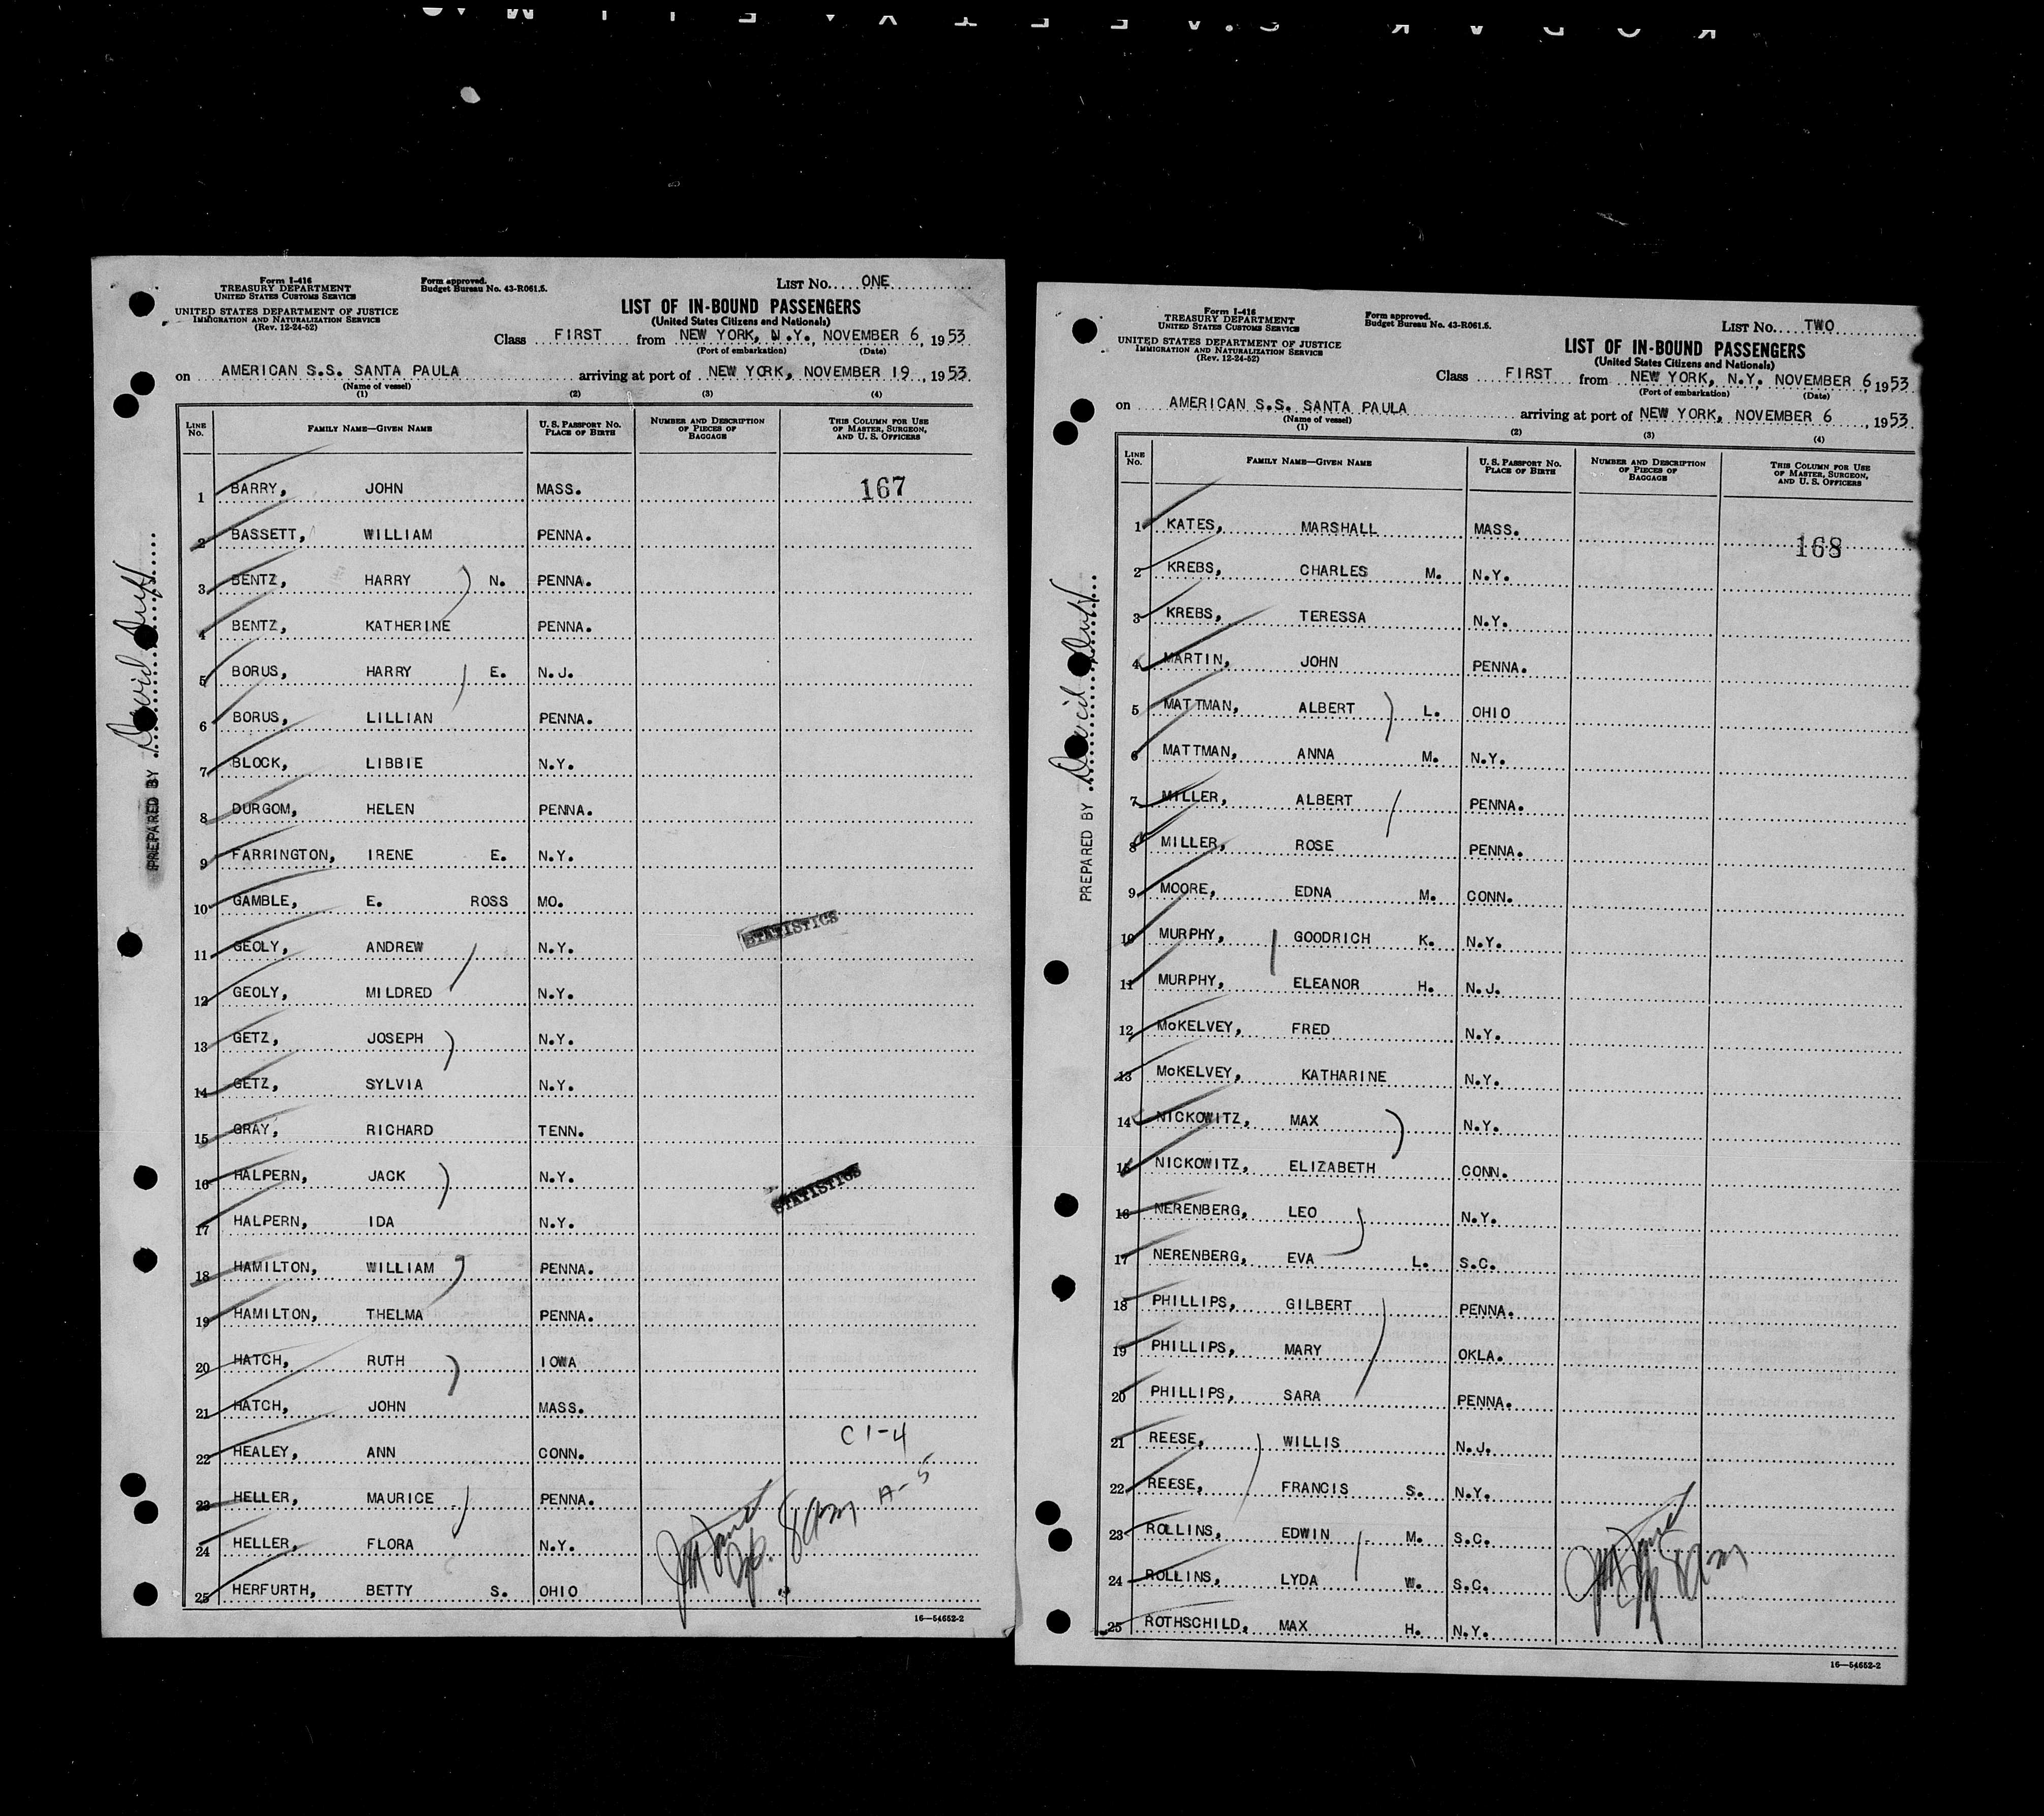 Form I-416
TREASURY DEPARTMENT
UNITED STATES CUSTOMS SERVICE
UNITED STATES DEPARTMENT OF JUSTICE
IMMIGRATION AND NATURALIZATION SERVICE
(Rev. 12-24-52)
Form approved.
Budget Bureau No. 43-R061.5.
LIST No. ONE
LIST OF IN-BOUND PASSENGERS
(United States Citizens and Nationals)
Class FIRST from NEW YORK, N.Y., NOVEMBER 6, 1953
(Port of embarkation) (Date)
on AMERICAN S.S. SANTA PAULA arriving at port of NEW YORK, NOVEMBER 19, 1953
(Name of vessel)
(1) (2) (3) (4)
LINE No. FAMILY NAME—GIVEN NAME U. S. PASSPORT No. PLACE OF BIRTH NUMBER AND DESCRIPTION OF PIECES OF BAGGAGE THIS COLUMN FOR USE OF MASTER, SURGEON, AND U. S. OFFICERS
1 BARRY, JOHN MASS. 167
2 BASSETT, WILLIAM PENNA.
3 BENTZ, HARRY N. PENNA.
4 BENTZ, KATHERINE PENNA.
5 BORUS, HARRY E. N.J.
6 BORUS, LILLIAN PENNA.
7 BLOCK, LIBBIE N.Y.
8 DURGOM, HELEN PENNA.
9 FARRINGTON, IRENE E. N.Y.
10 GAMBLE, E. ROSS MO.
STATISTICS
11 GEOLY, ANDREW N.Y.
12 GEOLY, MILDRED N.Y.
13 GETZ, JOSEPH N.Y.
14 GETZ, SYLVIA N.Y.
15 GRAY, RICHARD TENN.
16 HALPERN, JACK N.Y.
STATISTICS
17 HALPERN, IDA N.Y.
18 HAMILTON, WILLIAM PENNA.
19 HAMILTON, THELMA PENNA.
20 HATCH, RUTH IOWA
21 HATCH, JOHN MASS.
22 HEALEY, ANN CONN. C 1-4
23 HELLER, MAURICE PENNA. A-5
24 HELLER, FLORA N.Y.
25 HERFURTH, BETTY S. OHIO
16—54652-2
PREPARED BY David
Form I-416
TREASURY DEPARTMENT
UNITED STATES CUSTOMS SERVICE
UNITED STATES DEPARTMENT OF JUSTICE
IMMIGRATION AND NATURALIZATION SERVICE
(Rev. 12-24-52)
Form approved.
Budget Bureau No. 43-R061.5.
LIST No. TWO
LIST OF IN-BOUND PASSENGERS
(United States Citizens and Nationals)
Class FIRST from NEW YORK, N.Y. NOVEMBER 6, 1953
(Port of embarkation) (Date)
on AMERICAN S.S. SANTA PAULA arriving at port of NEW YORK, NOVEMBER 6, 1953
(Name of vessel)
(1) (2) (3) (4)
LINE No. FAMILY NAME—GIVEN NAME U. S. PASSPORT No. PLACE OF BIRTH NUMBER AND DESCRIPTION OF PIECES OF BAGGAGE THIS COLUMN FOR USE OF MASTER, SURGEON, AND U. S. OFFICERS
1 KATES, MARSHALL MASS. 168
2 KREBS, CHARLES M. N.Y.
3 KREBS, TERESSA N.Y.
4 MARTIN, JOHN PENNA.
5 MATTMAN, ALBERT L. OHIO
6 MATTMAN, ANNA M. N.Y.
7 MILLER, ALBERT PENNA.
8 MILLER, ROSE PENNA.
9 MOORE, EDNA M. CONN.
10 MURPHY, GOODRICH K. N.Y.
11 MURPHY, ELEANOR H. N.J.
12 McKELVEY, FRED N.Y.
13 McKELVEY, KATHARINE N.Y.
14 NICKOWITZ, MAX N.Y.
15 NICKOWITZ, ELIZABETH CONN.
16 NERENBERG, LEO N.Y.
17 NERENBERG, EVA L. S.C.
18 PHILLIPS, GILBERT PENNA.
19 PHILLIPS, MARY OKLA.
20 PHILLIPS, SARA PENNA.
21 REESE, WILLIS N.J.
22 REESE, FRANCIS S. N.Y.
23 ROLLINS, EDWIN M. S.C.
24 ROLLINS, LYDA W. S.C.
25 ROTHSCHILD, MAX H. N.Y.
16—54652-2
PREPARED BY David